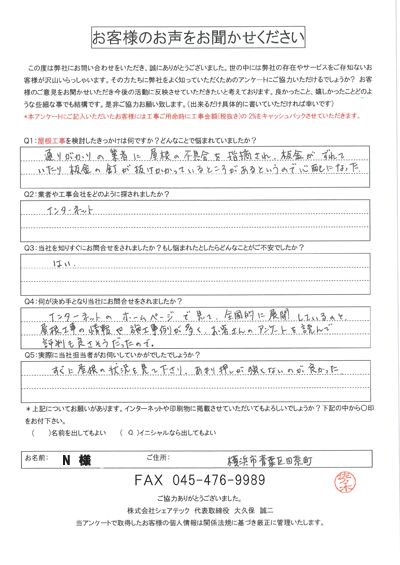 お客様のお声をお聞かせください
この度は弊社にお問い合わせをいただき、誠にありがとうございました。世の中には弊社の存在やサービスをご存知ないお
客様が沢山いらっしゃいます。その方たちに弊社をよく知っていただくためのアンケートにご協力いただけるでしょうか？ お客
様のご意見をお聞かせいただき今後の活動に反映させていただきたいと考えております。良かったこと、嬉しかったことどのよ
うな些細な事でも結構です。是非ご協力お願い致します。（出来るだけ具体的に書いていただければ幸いです）
*本アンケートにご記入いただいたお客様には工事ご用命時に工事金額(税抜き)の2%をキャッシュバックさせていただきます。
Q1:屋根工事を検討したきっかけは何ですか？どんなことで悩まれていましたか？
通りがかりの業者に屋根の不具合を指摘され、板金がずれて
いたり板金の釘が抜けかかっているところがあるというので心配になった
Q2:業者や工事会社をどのように探されましたか？
インターネット
Q3:当社を知りすぐにお問合せをされましたか？もし悩まれたとしたらどんなことがご不安でしたか？
はい.
Q4:何が決め手となり当社にお問合せをされましたか？
インターネットのホームページで見て、全国的に展開しているのと、
屋根工事の情報や施工事例が多く、お客さんのアンケートを読んで
評判も良さそうだったので。
Q5:実際に当社担当者がお伺いしていかがでしたでしょうか？
すぐに屋根の状況を見て下さり、あまり押しが強くないのが良かった
＊上記についてお願いがあります。インターネットや印刷物に掲載させていただいてもよろしいでしょうか？下記の中から〇印
をお付下さい。
（ ）名前を出してもよい （〇）イニシャルなら出してもよい
お名前: N 様 ご住所: 横浜市青葉区田奈町
FAX 045-476-9989
ご協力ありがとうございました。
株式会社シェアテック 代表取締役 大久保 誠二
当アンケートで取得したお客様の個人情報は関係法規に基づき厳正に管理いたします。